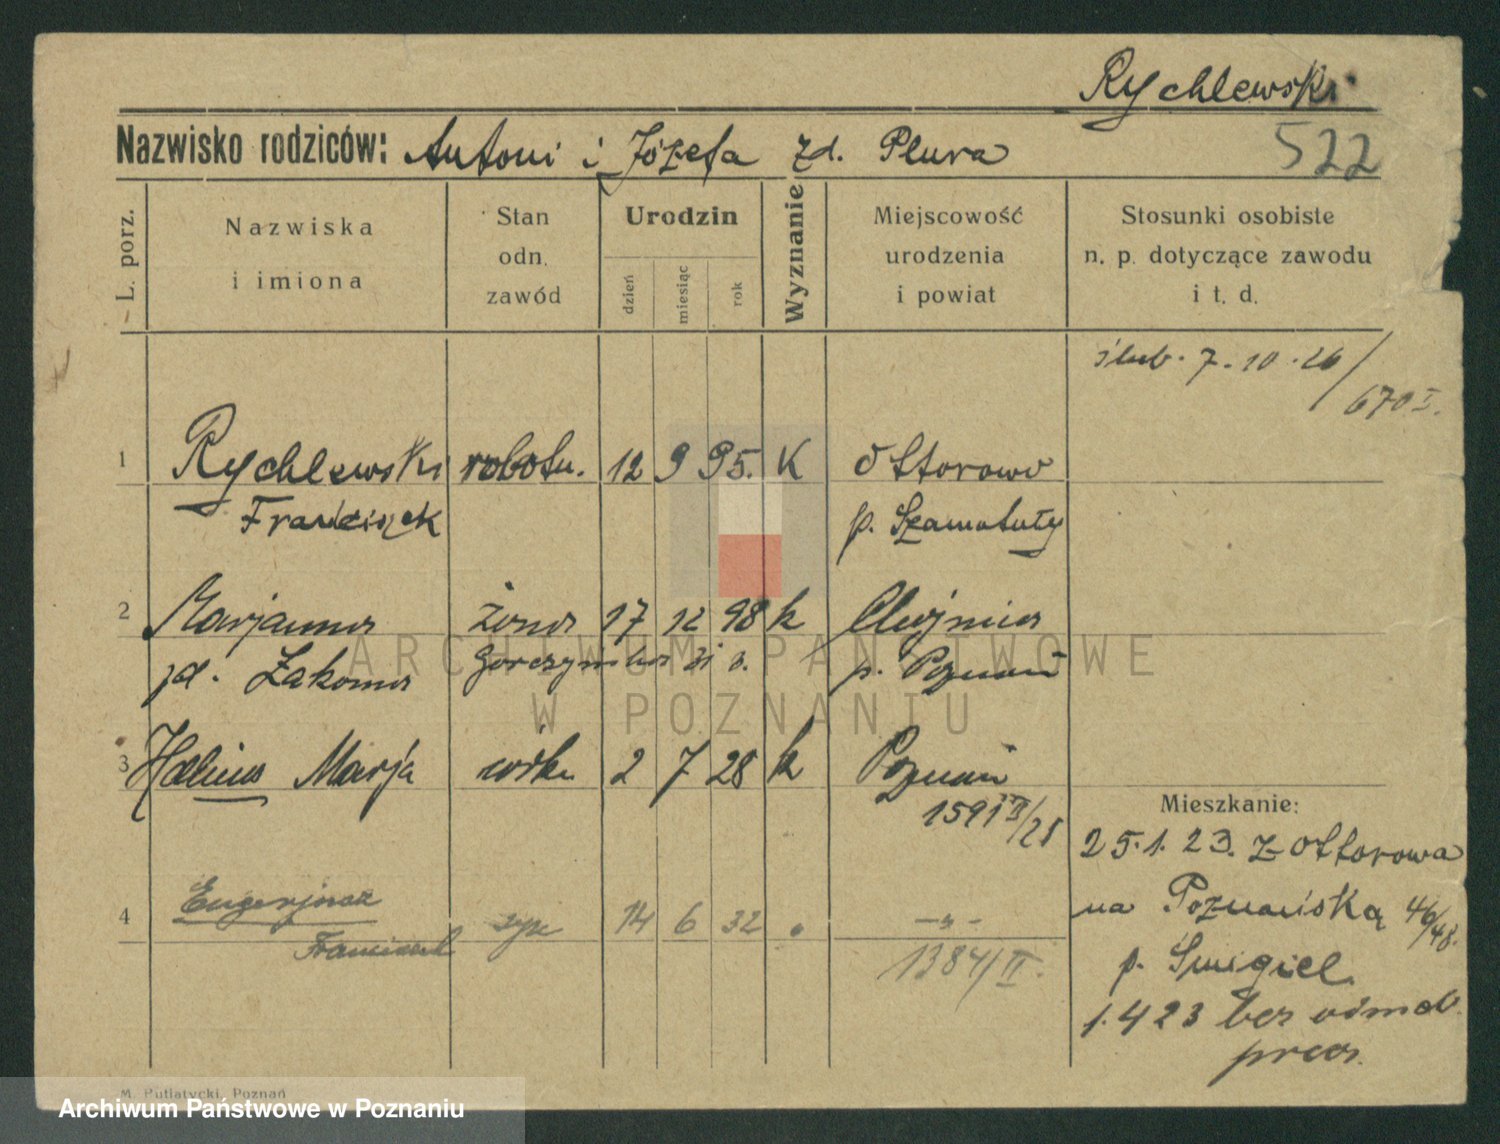 Rychlewski
Nazwisko rodziców: Antoni i Józefa zd. Plura
522
L. porz.
Nazwiska i imiona
Stan odn. zawód
Urodzin
dzień
miesiąc
rok
Wyznanie
Miejscowość urodzenia i powiat
Stosunki osobiste n. p. dotyczące zawodu i t. d.
ślub. 7. 10. 26/
670 I.
1 Rychlewski robotn. 12 9 95. K Ottorowo
Franciszek p. Szamotuły
2 Marjanna żona 17 12 98 k
zd. Żakowna p. Poznań
ARCHIWUM PAŃSTWOWE
W POZNANIU
3 Halina Marja córka 2 7 28 k Poznań
1591 II/28
Mieszkanie:
25.1.23. z Ottorowa
na Poznańską 46/48.
p. Śmigiel
1.4 23 bez
4 Eugenjusz syn 14 6 32 -„-
Franciszek 1384/II.
M. Putiatycki, Poznań
Archiwum Państwowe w Poznaniu